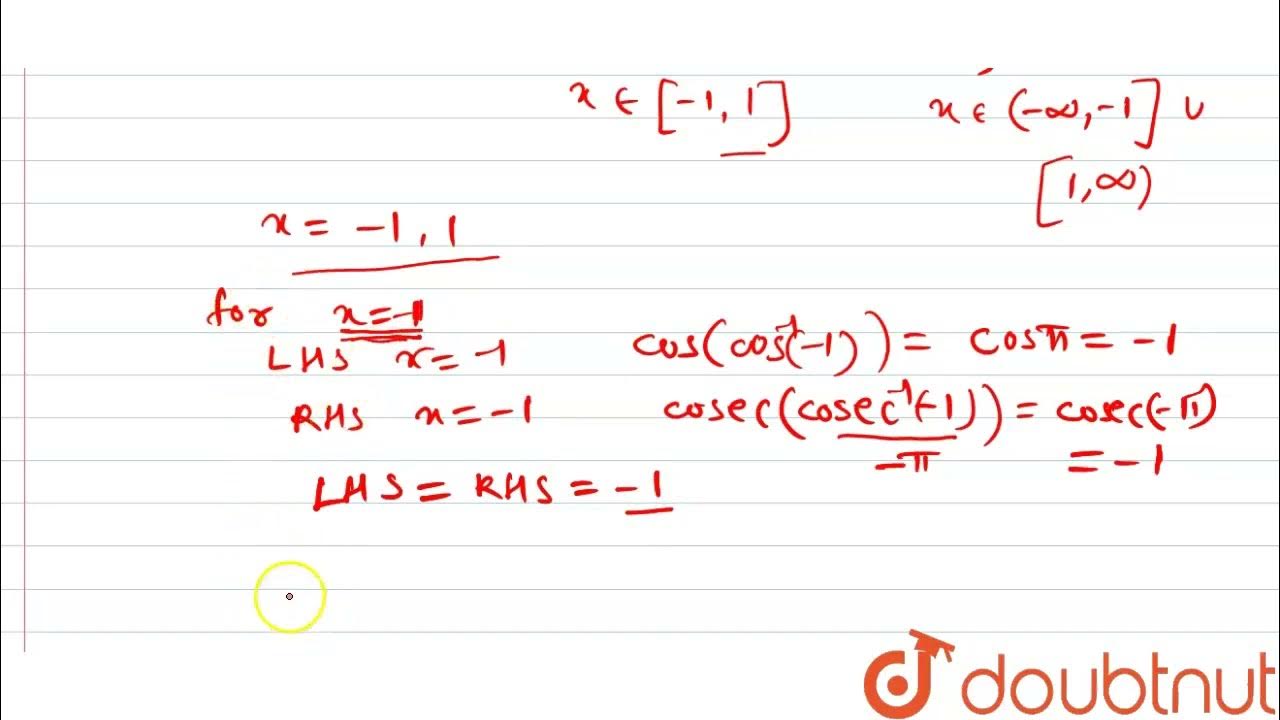 x ∈ [-1, 1]
x ∈ (-∞, -1] ∪
[1, ∞)
x = -1, 1
for x = -1
LHS x = -1
cos(cos⁻¹(-1)) = cos π = -1
RHS x = -1
cosec(cosec⁻¹(-1)) = cosec(-π)
-π
= -1
LHS = RHS = -1
doubtnut